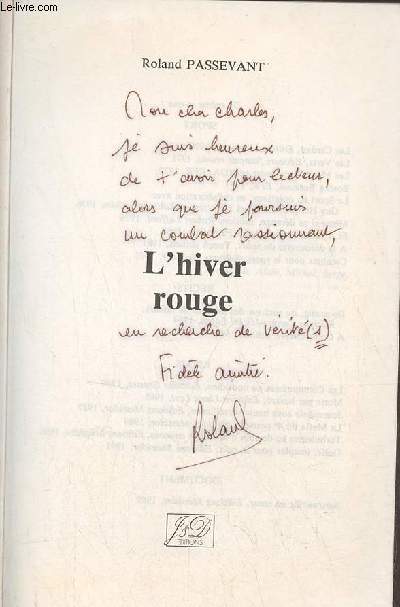 le-livre.com
Roland PASSEVANT
Mon cher Charles,
je suis heureux
de t'avoir pour lecteur,
alors que je poursuis
un combat passionnant,
L'hiver
rouge
en recherche de vérité(s)
Fidèle amitié.
Roland
JsD
EDITIONS